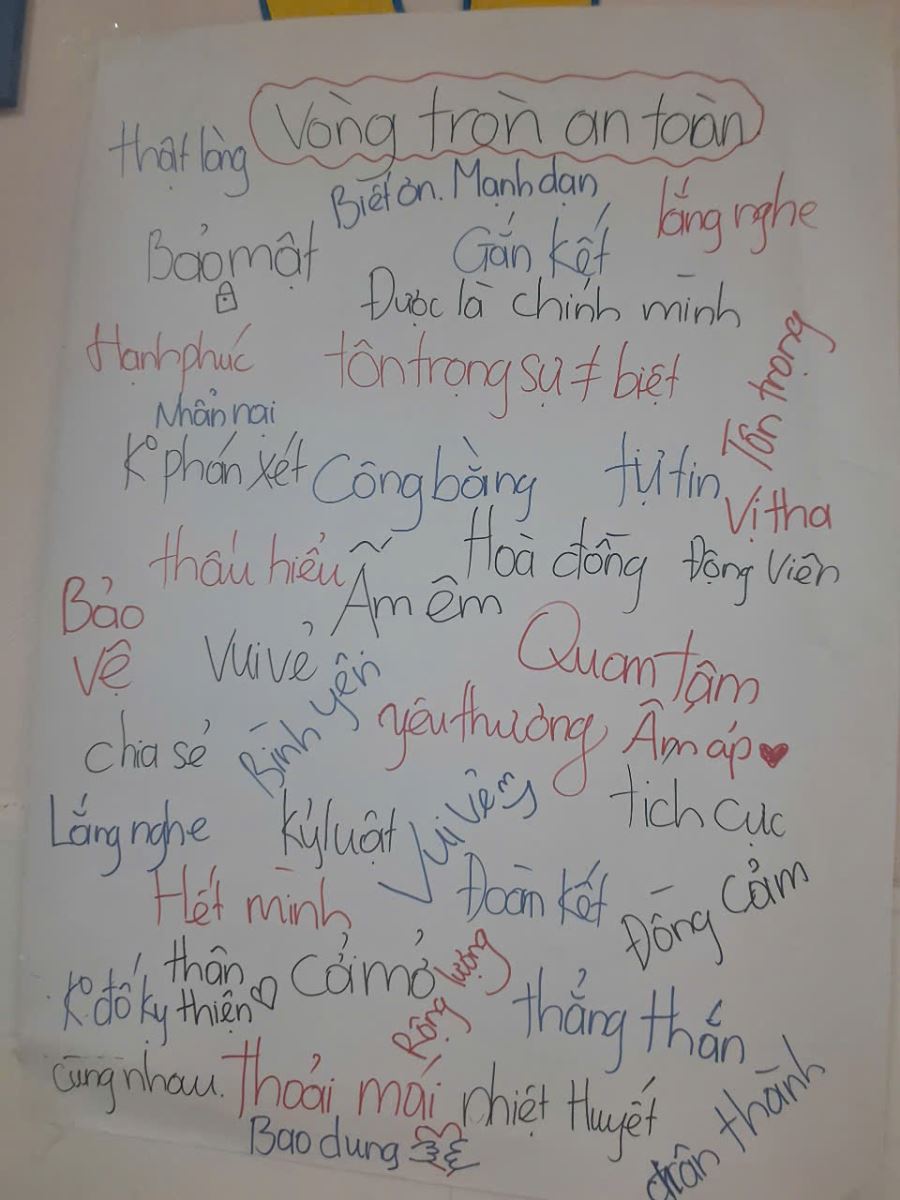 Vòng tròn an toàn
thật lòng
Biết ơn. Mạnh dạn
lắng nghe
Bảo mật
Gắn kết
Được là chính mình
Hạnh phúc
tôn trọng sự ≠ biệt
Tôn trọng
Nhẫn nại
K° phán xét
Công bằng
tự tin
Vị tha
thấu hiểu
Hoà đồng
Động viên
Ấm êm
Bảo
vệ
Vui vẻ
Bình yên
Quan tâm
yêu thương
Ấm áp
chia sẻ
tích cực
Lắng nghe
kỷ luật
Hết mình
Đoàn kết
Đồng cảm
thân
thiện
Cởi mở
Rộng lượng
K° đố kỵ
thẳng thắn
cùng nhau.
Thoải mái
nhiệt Huyết
chân thành
Bao dung